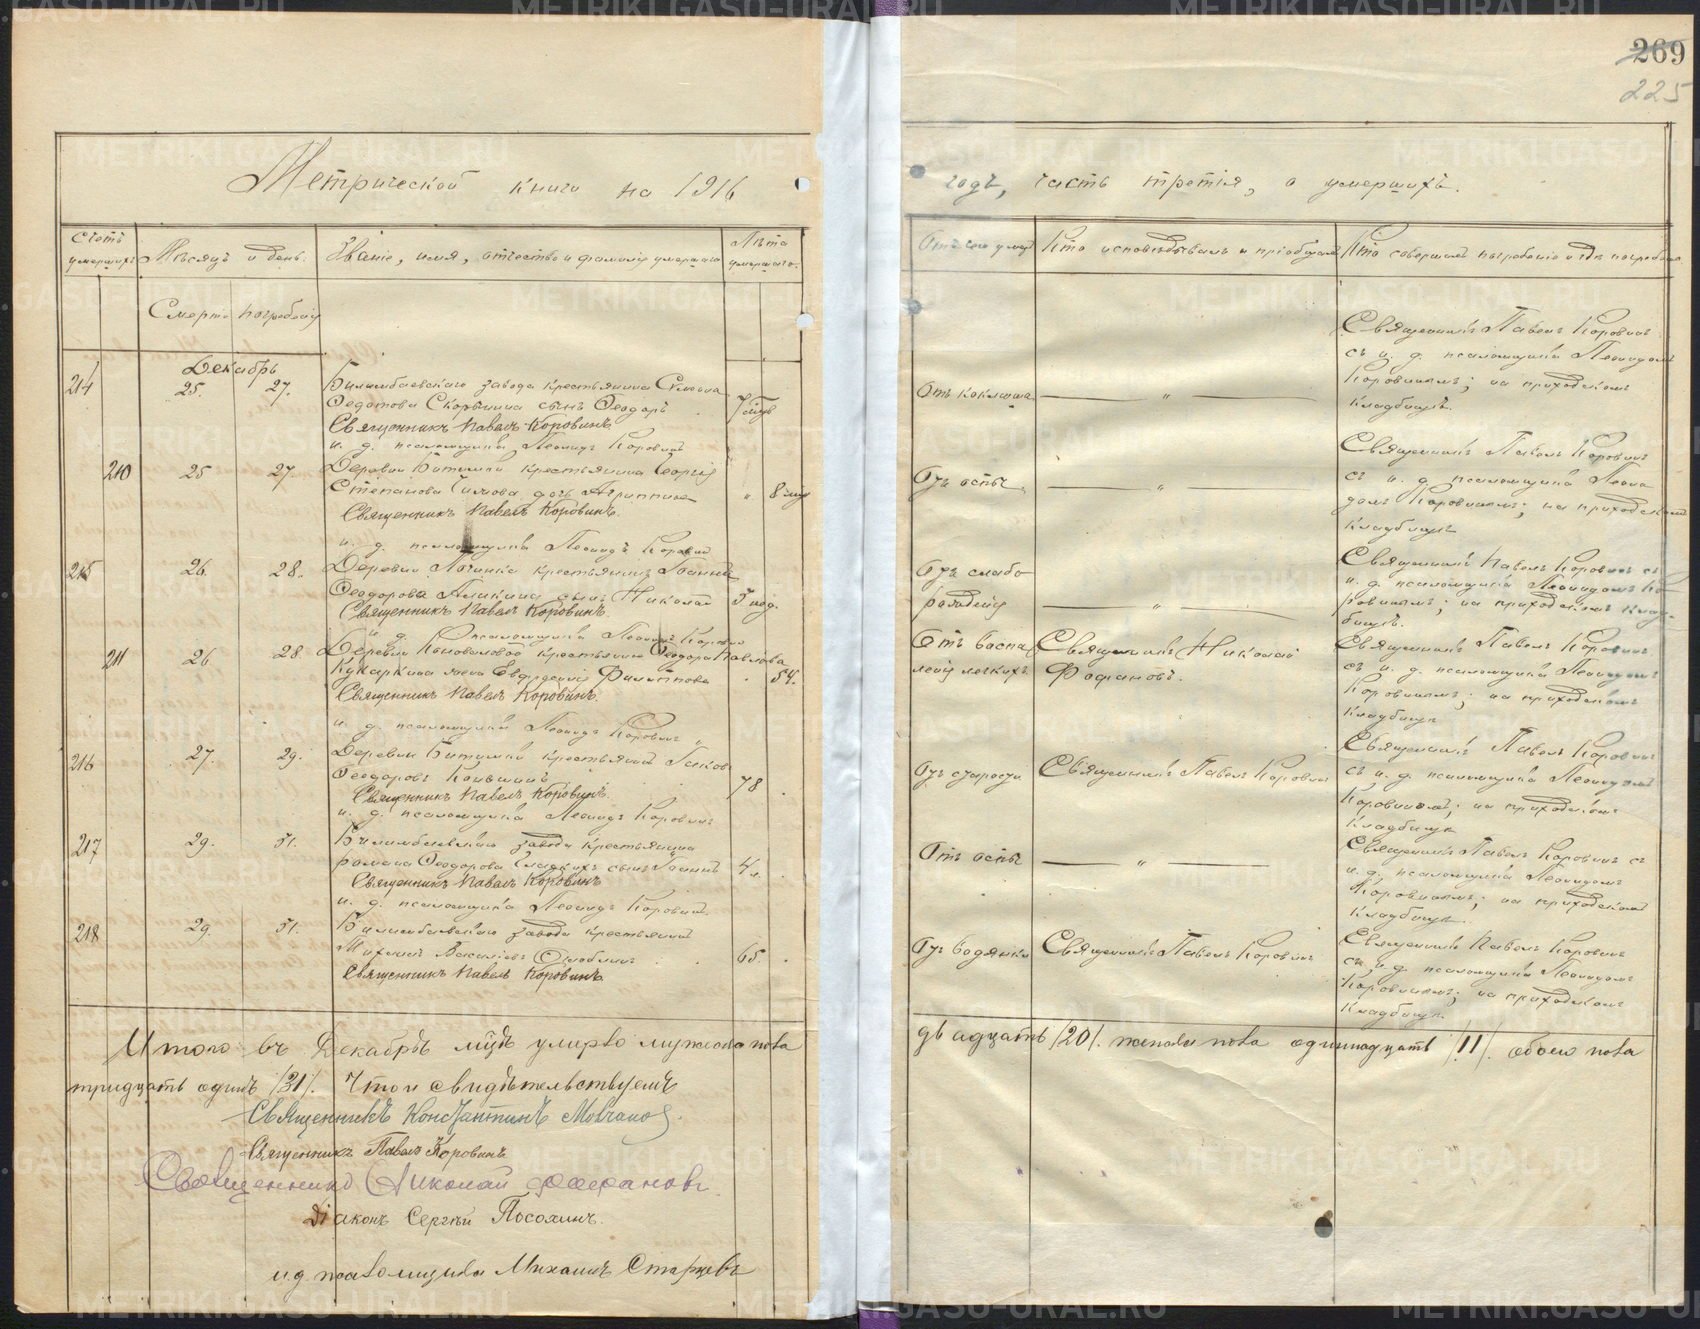 269
225
Метрической книги на 1916
годъ, часть третія, о умершихъ.
Счетъ умершихъ.
Мѣсяцъ и день.
Званіе, имя, отчество и фамилія умершаго
Лѣта умершаго.
Отъ чего умеръ
Кто исповѣдывалъ и пріобщалъ
Кто совершалъ погребеніе и гдѣ погребены
Смерти
погребенія
Декабрь
214 25. 27. Билимбаевскаго завода крестьянина Симеона
Федотова Скорынина сынъ Ѳеодоръ 7 мѣс
Священникъ Павелъ Коровинъ
и. д. псаломщика Леонидъ Коровинъ
Отъ коклюша — „ —
Священникъ Павелъ Коровинъ
съ и. д. псаломщика Леонидомъ
Коровинымъ; на приходскомъ
кладбищѣ.
210 25 27. Деревни Битимки крестьянина Георгія
Степанова дочь Агриппина „ 8 мѣс
Священникъ Павелъ Коровинъ.
и. д. псаломщика Леонидъ Коровинъ
Отъ оспы — „ —
Священникъ Павелъ Коровинъ
съ и. д. псаломщика Леони
домъ Коровинымъ; на приходскомъ
кладбищѣ
215 26. 28. Деревни Починка крестьянина Іоанна
Ѳеодорова сынъ Николай 5 нед.
Священникъ Павелъ Коровинъ.
и. д. псаломщика Леонидъ Коровинъ
Отъ слабо
рожденія — „ —
Священникъ Павелъ Коровинъ съ
и. д. псаломщика Леонидомъ Ко
ровинымъ; на приходскомъ клад
бищѣ.
211 26 28. Деревни Коноваловой крестьянина Ѳеодора Павлова
Кукаркина жена Евдокія Филиппова 54.
Священникъ Павелъ Коровинъ.
и. д. псаломщика Леонидъ Коровинъ
Отъ воспа
ленія легкихъ.
Священникъ Николай
Фофановъ.
Священникъ Павелъ Коровинъ
съ и. д. псаломщика Леонидомъ
Коровинымъ; на приходскомъ
кладбищѣ
216 27. 29. Деревни Битимки крестьянинъ Іаковъ
Ѳеодоровъ 78
Священникъ Павелъ Коровинъ.
и. д. псаломщика Леонидъ Коровинъ
Отъ старости
Священникъ Павелъ Коровинъ
Священникъ Павелъ Коровинъ
съ и. д. псаломщика Леонидомъ
Коровинымъ; на приходскомъ
кладбищѣ
217 29. 31. Билимбаевскаго завода крестьянина
Романа Ѳеодорова Гладкихъ сынъ Іоаннъ 4 л.
Священникъ Павелъ Коровинъ
и. д. псаломщика Леонидъ Коровинъ
Отъ оспы — „ —
Священникъ Павелъ Коровинъ съ
и. д. псаломщика Леонидомъ
Коровинымъ; на приходскомъ
кладбищѣ.
218 29. 31. Билимбаевскаго завода крестьянинъ
Михаилъ Васильевъ 65.
Священникъ Павелъ Коровинъ
Отъ водянки
Священникъ Павелъ Коровинъ
Священникъ Павелъ Коровинъ
съ и. д. псаломщика Леонидомъ
Коровинымъ; на приходскомъ
кладбищѣ.
Итого въ Декабрѣ мѣсяцѣ умерло мужеска пола
двадцать /20/. женска пола одиннадцать /11/. обоего пола
тридцать одинъ /31/. Что и свидѣтельствуемъ
Священникъ Константинъ Молчановъ.
Священникъ Павелъ Коровинъ
Священникъ Николай Фофановъ.
Діаконъ Сергѣй Посохинъ.
и.д. псаломщика Михаилъ Старцевъ
METRIKI.GASO-URAL.RU